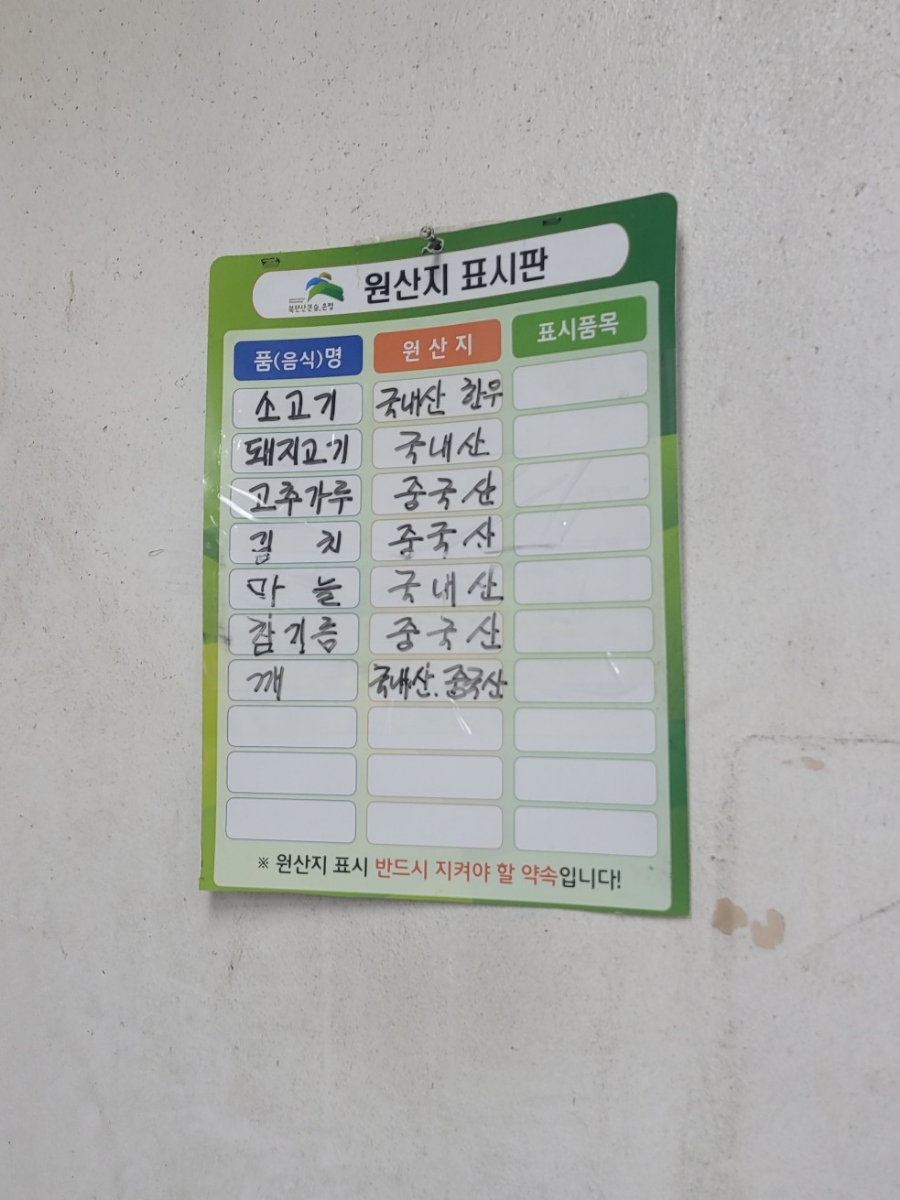 북한산큰숲, 은평
원산지 표시판
품(음식)명 원산지 표시품목
소고기 국내산 한우
돼지고기 국내산
고추가루 중국산
김 치 중국산
마 늘 국내산
참기름 중국산
깨 국내산. 중국산
※ 원산지 표시 반드시 지켜야 할 약속입니다!